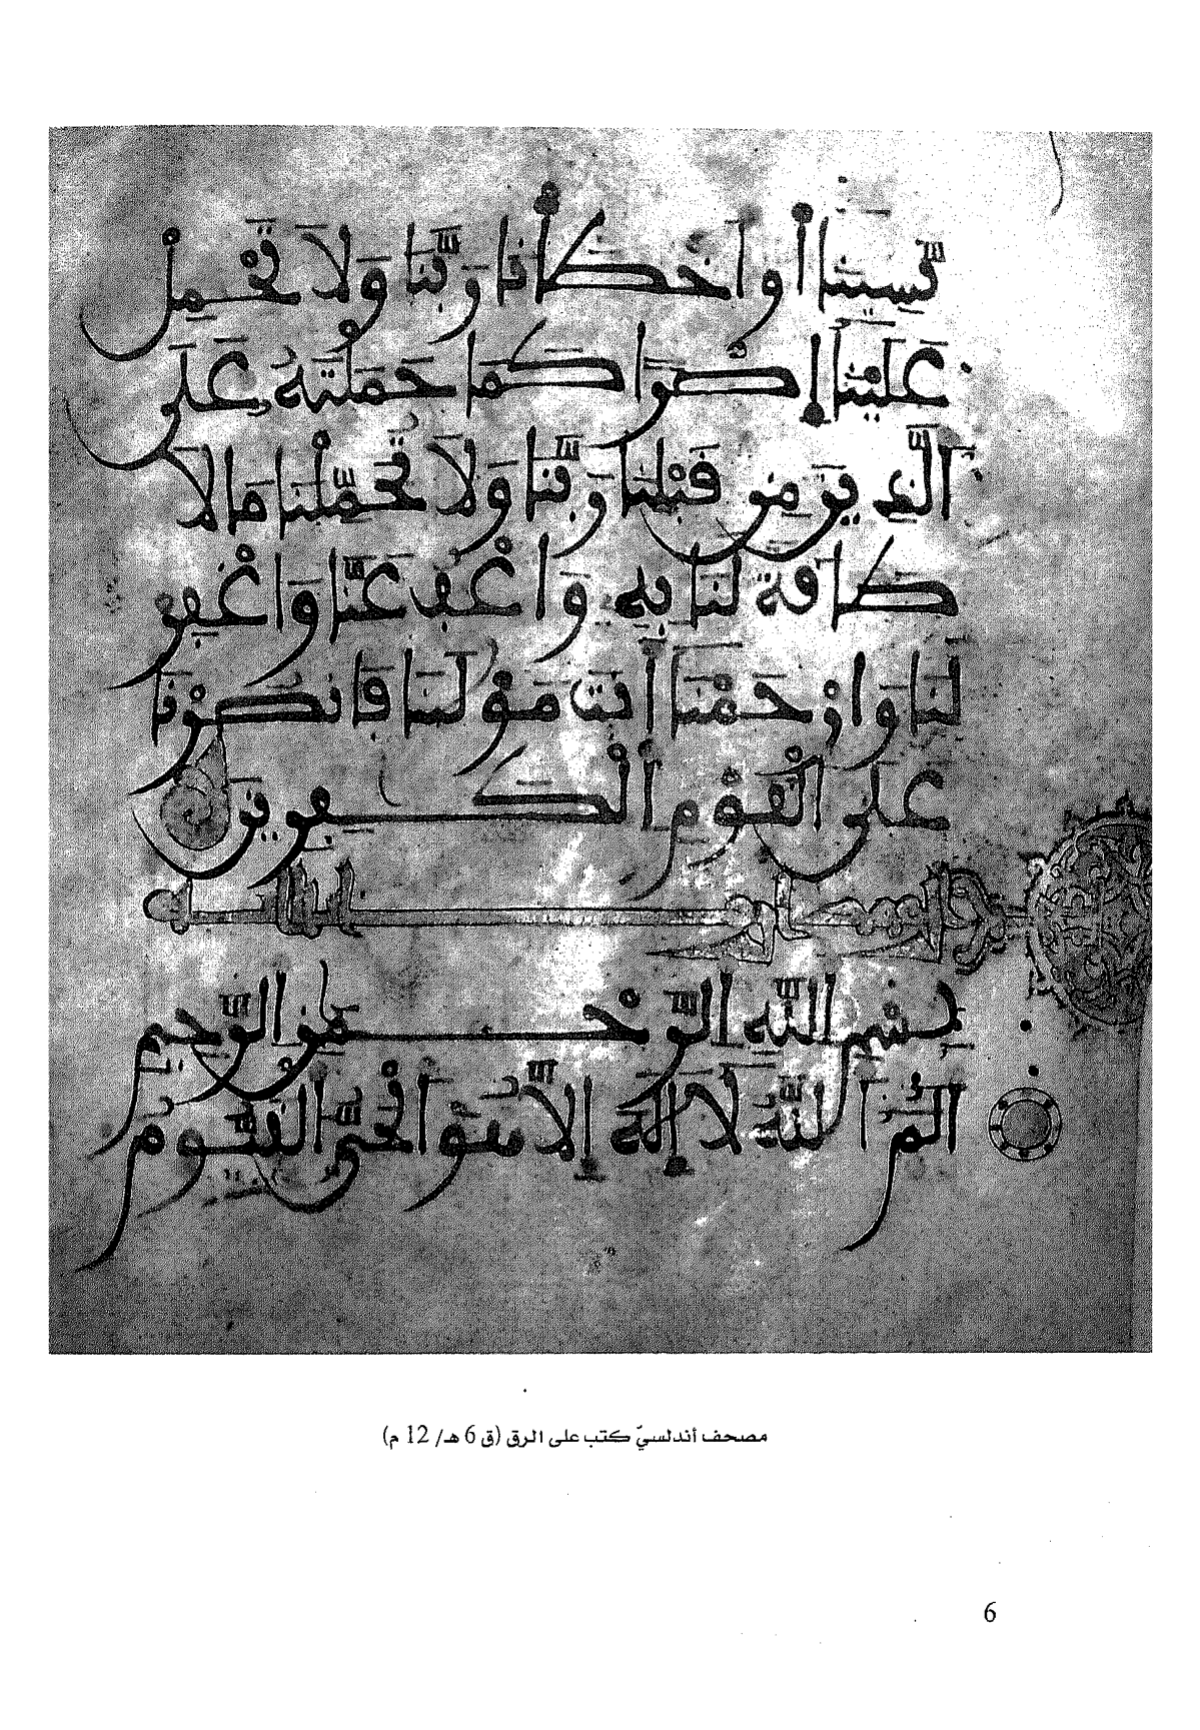 نَّسِينَا أَوَ اخْطَأْنَا رَبَّنَا وَلَا تَحْمِلْ
عَلَيْنَا إِصْرًا كَمَا حَمَلْتَهُ عَلَى
الَّذِينَ مِن قَبْلِنَا رَبَّنَا وَلَا تُحَمِّلْنَا مَا لَا
طَاقَةَ لَنَا بِهِ وَاعْفُ عَنَّا وَاغْفِرْ
لَنَا وَارْحَمْنَا أَنتَ مَوْلَنَا فَانصُرْنَا
عَلَى الْقَوْمِ الْكَفِرِينَ
بِسْمِ اللَّهِ الرَّحْمَنِ الرَّحِيمِ
الَمِّ اللَّهُ لَا إِلَهَ إِلَّا هُوَ الْحَيُّ الْقَيُّومُ
مصحف أندلسيّ كتب على الرق (ق 6 هـ/ 12 م)
6